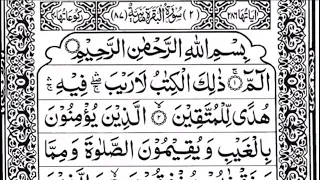 اٰیَاتُهَا ٢٨٦ (٢) سُوْرَةُ الْبَقَرَةِ مَدَنِیَّةٌ (٨٧) رُكُوْعَاتُهَا
بِسْمِ اللّٰهِ الرَّحْمٰنِ الرَّحِیْمِ
الٓمّٓ ۚ﴿١﴾ ذٰلِكَ الْكِتٰبُ لَا رَیْبَ ۛۖ فِیْهِ ۛۚ
هُدًی لِّلْمُتَّقِیْنَ ﴿٢﴾ الَّذِیْنَ یُؤْمِنُوْنَ
بِالْغَیْبِ وَ یُقِیْمُوْنَ الصَّلٰوةَ وَ مِمَّا